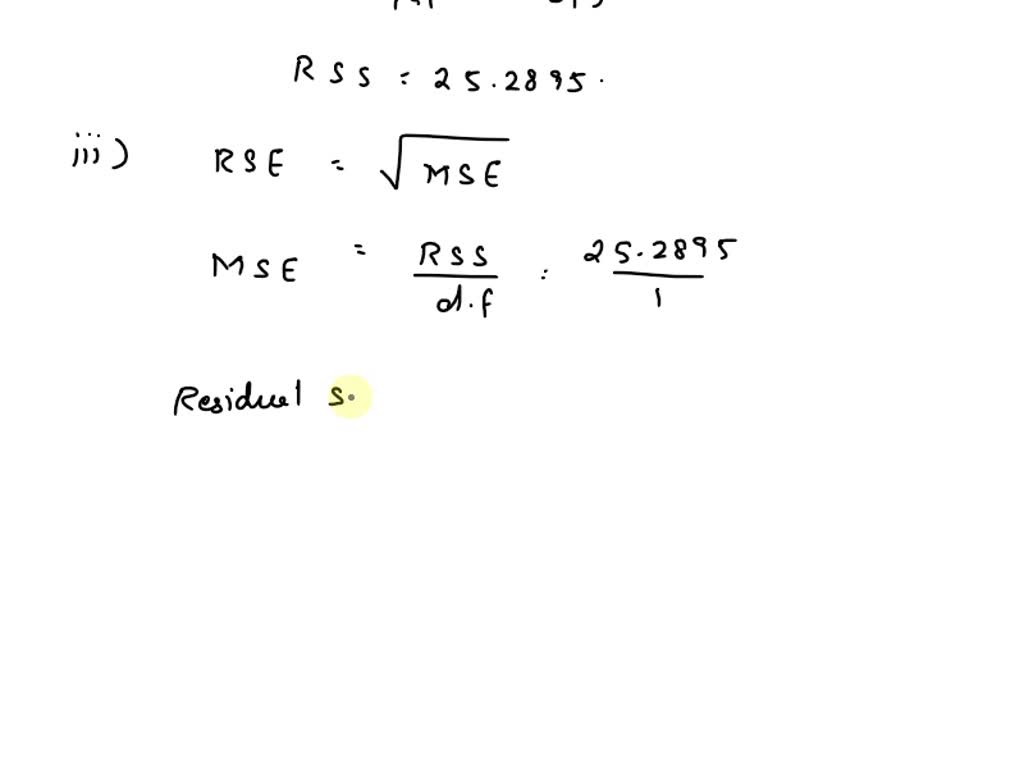 RSS = 25.2895.
iii) RSE = √MSE
MSE = RSS / d.f = 25.2895 / 1
Residual s.